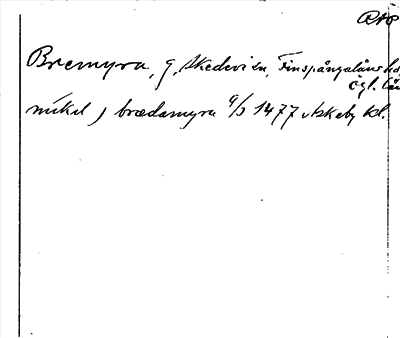 Bremyra, g, Skedevi sn, Finspångaläns hd,
Ögl. län
mikil j brædamyra 9/3 1477 Askeby kl.